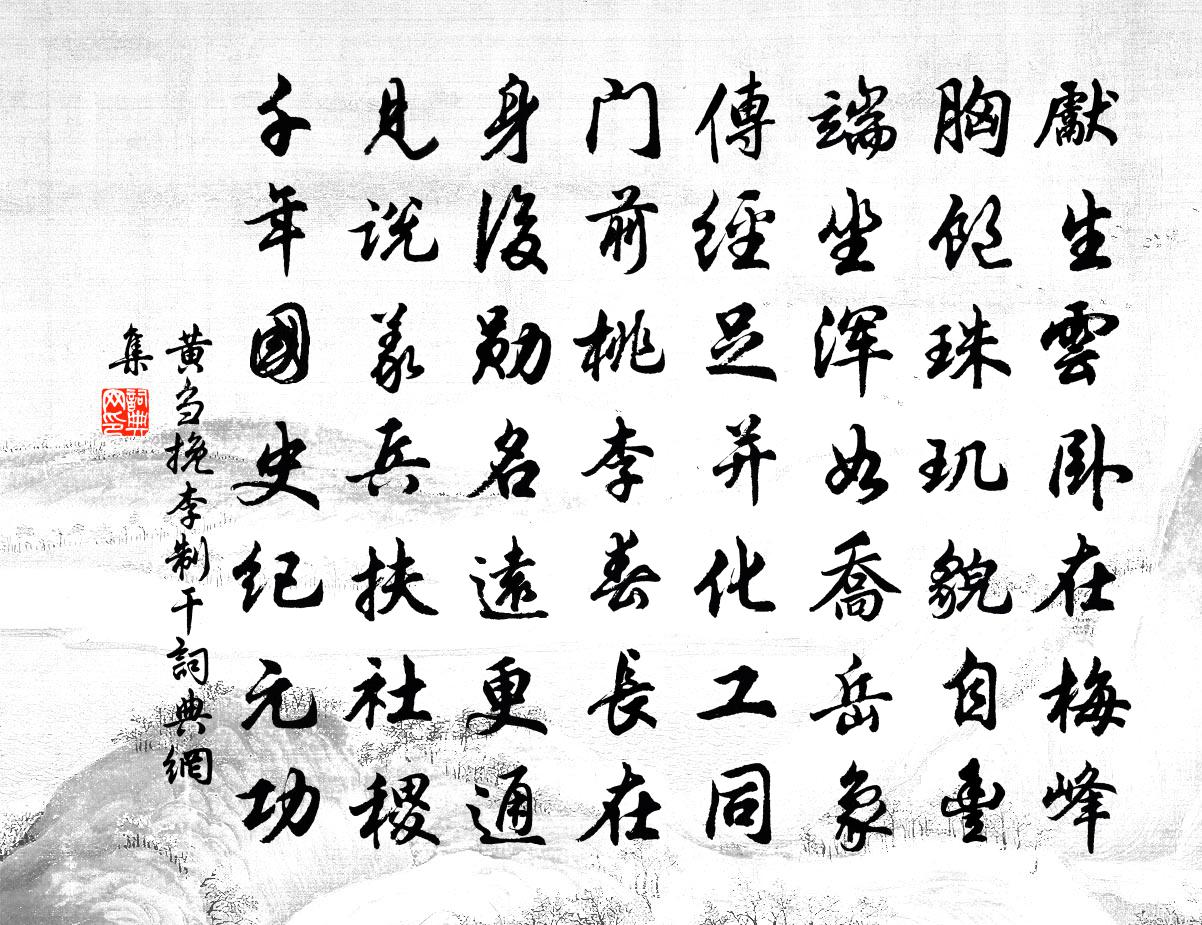 獻生雲卧在梅峰
胸飽珠玑貌自豐
端坐渾如喬岳象
傳經足并化工同
门前桃李春長在
身後勋名遠更通
見説義兵扶社稷
千年國史紀元功
黄刍挽李制干詞典網
集
詞典网印